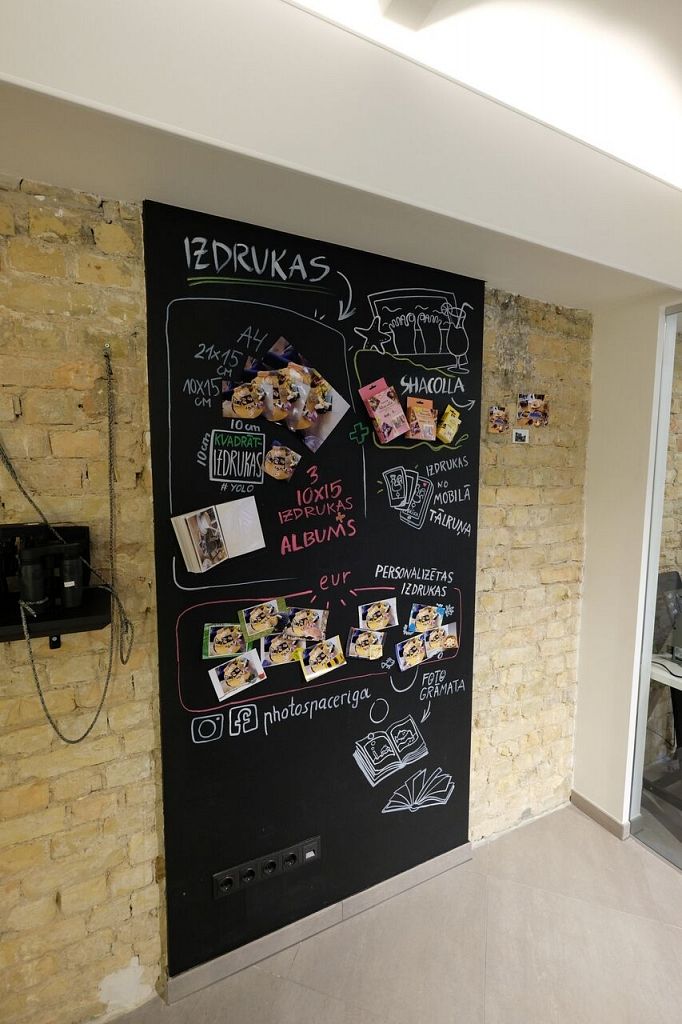 IZDRUKAS
A4
21×15
CM
10×15
CM
10cm
10cm
KVADRĀT-
IZDRUKAS
#YOLO
SHACOLLA
3
10X15
IZDRUKAS
+
ALBUMS
IZDRUKAS
NO
MOBILĀ
TĀLRUŅA
eur
PERSONALIZĒTAS
IZDRUKAS
photospaceriga
FOTO
GRĀMATA